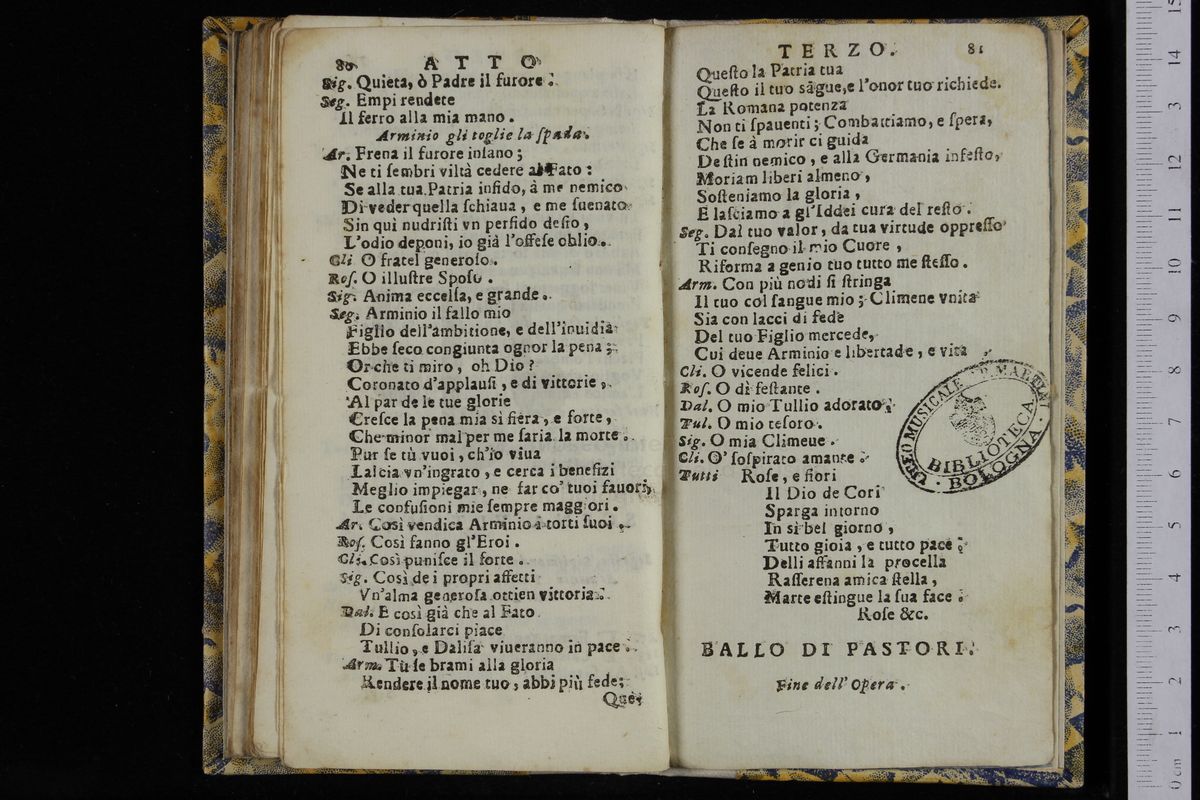 80 ATTO
Sig. Quieta, ò Padre il furore.
Seg. Empi rendete
Il ferro alla mia mano.
Arminio gli toglie la ſpada.
Ar. Frena il furore inſano;
Ne ti ſembri viltà cedere al Fato:
Se alla tua Patria infido, à me nemico
Di veder quella ſchiaua, e me ſuenato
Sin quì nudriſti vn perfido deſio,
L'odio deponi, io già l'offeſe oblio.
Cli O fratel generoſo.
Roſ. O illuſtre Spoſo.
Sig. Anima eccelſa, e grande.
Seg. Arminio il fallo mio
Figlio dell'ambitione, e dell'inuidia
Ebbe ſeco congiunta ognor la pena;
Or che ti miro, oh Dio?
Coronato d'applauſi, e di vittorie,
Al par de le tue glorie
Creſce la pena mia sì fiera, e forte,
Che minor mal per me ſaria la morte.
Pur ſe tù vuoi, ch'io viua
Laſcia vn'ingrato, e cerca i benefizi
Meglio impiegar, ne far co' tuoi fauori,
Le confuſioni mie ſempre maggiori.
Ar. Così vendica Arminio i torti ſuoi.
Roſ. Così fanno gl'Eroi.
Cli. Così puniſce il forte.
Sig. Così de i propri affetti
Vn'alma generoſa ottien vittoria.
Dal. E così già che al Fato
Di conſolarci piace
Tullio, e Daliſa viueranno in pace.
Arm. Tù ſe brami alla gloria
Rendere il nome tuo, abbi più fede;
Que-
TERZO. 81
Queſto la Patria tua
Queſto il tuo sāgue, e l'onor tuo richiede.
La Romana potenza
Non ti ſpauenti; Combattiamo, e ſpera,
Che ſe à morir ci guida
Deſtin nemico, e alla Germania infeſto,
Moriam liberi almeno,
Soſteniamo la gloria,
E laſciamo a gl'Iddei cura del reſto.
Seg. Dal tuo valor, da tua virtude oppreſſo
Ti conſegno il mio Cuore,
Riforma a genio tuo tutto me ſteſſo.
Arm. Con più nodi ſi ſtringa
Il tuo col ſangue mio; Climene vnita
Sia con lacci di fede
Del tuo Figlio mercede,
Cui deue Arminio e libertade, e vita.
Cli. O vicende felici.
Roſ. O dì feſtante.
Dal. O mio Tullio adorato.
Tul. O mio teſoro.
Sig. O mia Climeue.
Cli. O' ſoſpirato amante.
Tutti Roſe, e fiori
Il Dio de Cori
Sparga intorno
In sì bel giorno,
Tutto gioia, e tutto pace;
Delli affanni la procella
Raſſerena amica ſtella,
Marte eſtingue la ſua face.
Roſe &c.
BALLO DI PASTORI.
Fine dell' Opera.
LICEO MUSICALE P. MARTINI
BIBLIOTECA
BOLOGNA
0 cm 1 2 3 4 5 6 7 8 9 10 11 12 13 14 15